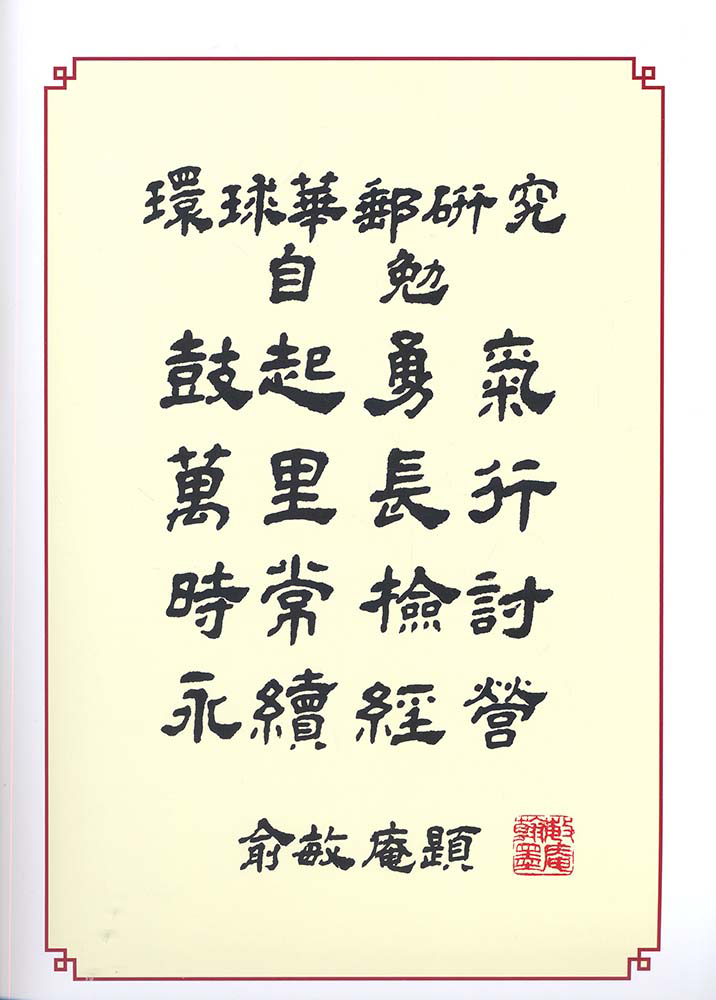 環球華郵研究
自勉
鼓起勇氣
萬里長行
時常檢討
永續經營
俞敏庵題
敏庵翰墨